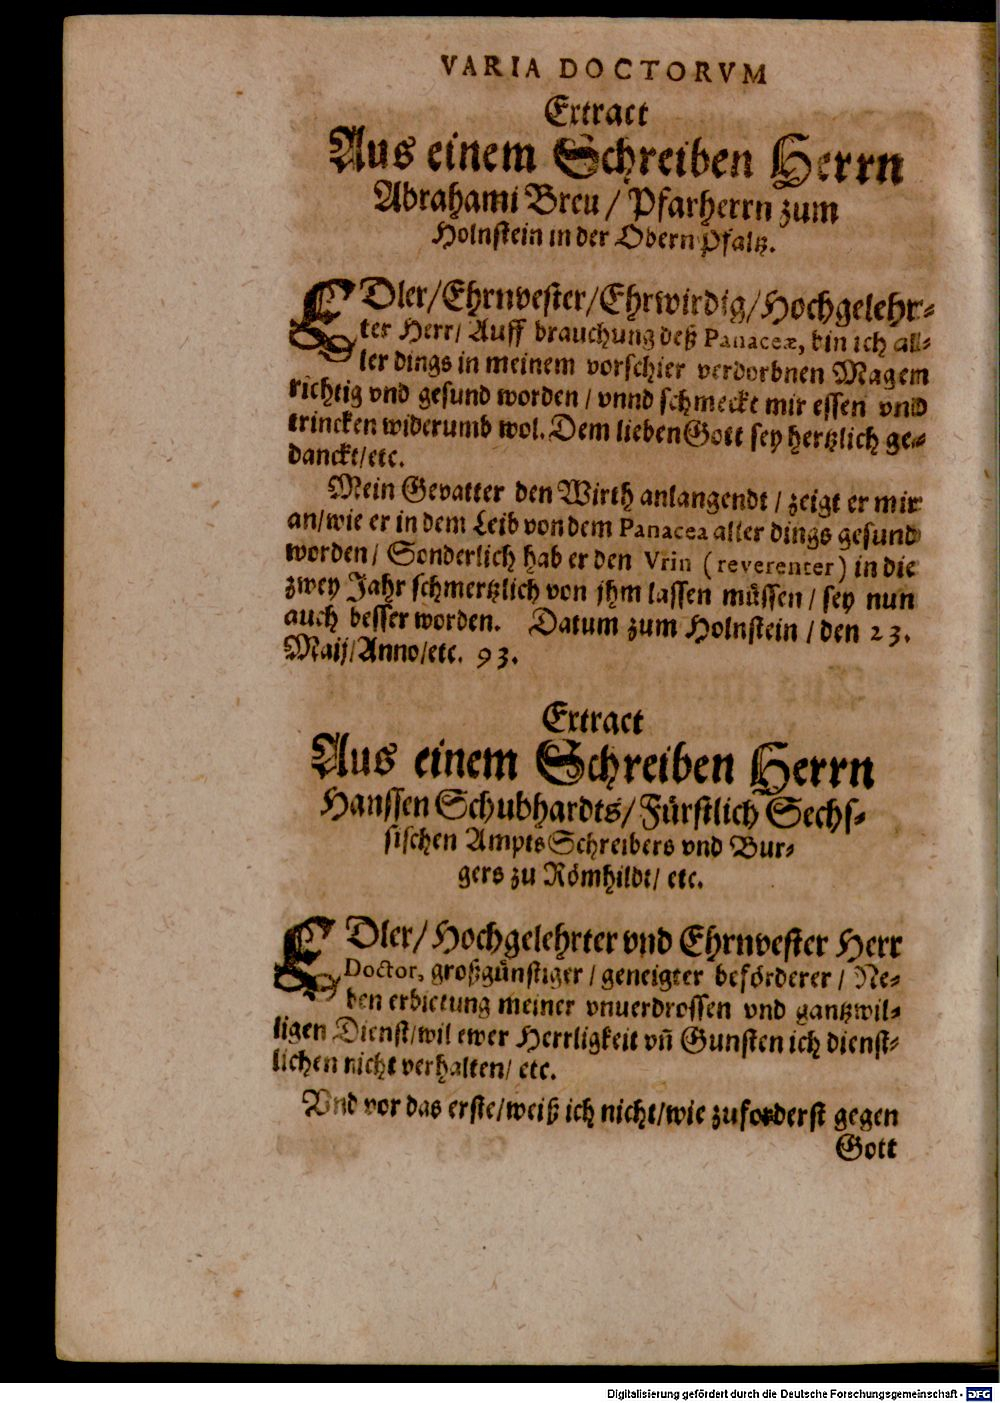 VARIA DOCTORVM
Extract
Aus einem Schreiben Herrn
Abrahami Breu / Pfarherrn zum
Holnstein in der Obern Pfaltz.
EDler/Ehrnvester/Ehrwirdig/Hochgelehr-
ter Herr/ Auff brauchung deß Panaceæ, bin ich al-
ler dings in meinem vorschier verdorbnen Magem
richtig vnd gesund worden / vnnd schmeckt mir essen vnd
trincken widerumb wol. Dem lieben Gott sey hertzlich ge-
danckt/etc.
Mein Gevatter den Wirth anlangendt / zeigt er mir
an/wie er in dem Leib von dem Panacea aller dings gesund
worden/ Sonderlich hab er den Vrin (reverenter) in die
zwey Jahr schmertzlich von jhm lassen müssen / sey nun
auch besser worden. Datum zum Holnstein / den 23.
Maij/Anno/etc. 93.
Extract
Aus einem Schreiben Herrn
Hanssen Schubhardts/ Fürstlich Sechs-
sischen Ampts Schreibers vnd Bur-
gers zu Römhildt/ etc.
EDler/ Hochgelehrter vnd Ehrnvester Herr
Doctor, großgünstiger / geneigter beförderer / Ne-
ben erbietung meiner vnuerdrossen vnd gantzwil-
ligen Dienst/wil ewer Herrligkeit vñ Gunsten ich dienst-
lichen nicht verhalten/ etc.
Vnd vor das erste/weiß ich nicht/wie zuforderst gegen
Gott
Digitalisierung gefördert durch die Deutsche Forschungsgemeinschaft - DFG